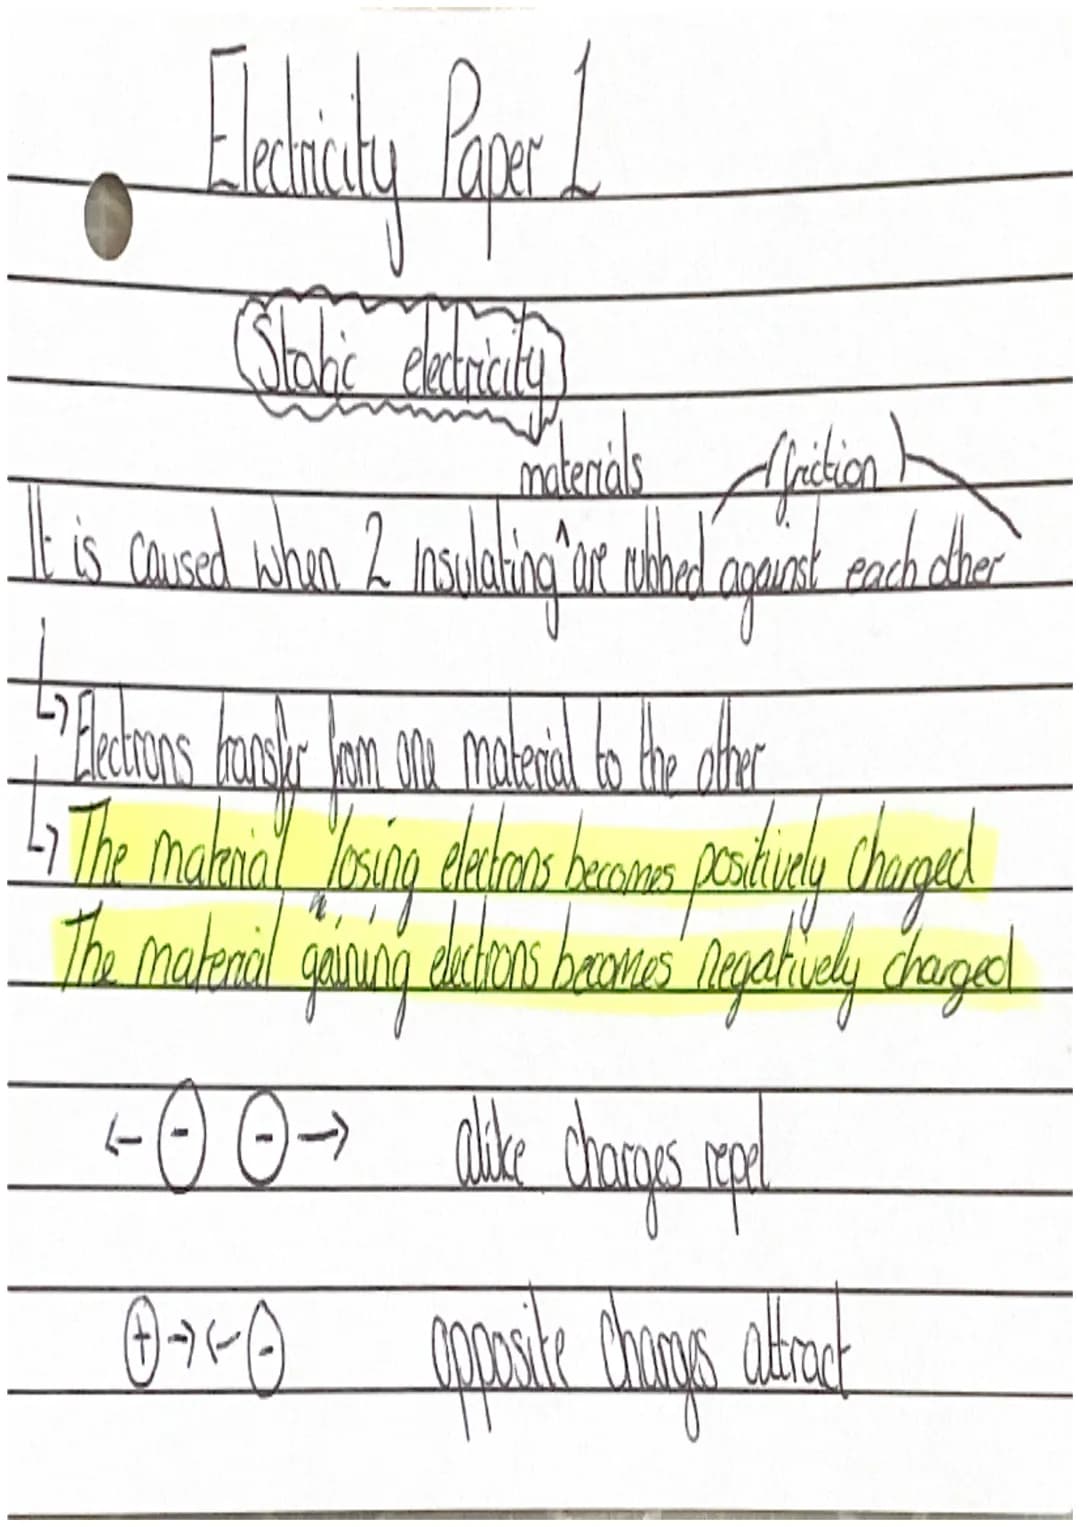 Electricity Paper 1
Static electricity
materials (friction)
It is caused when 2 insulating ^ are rubbed against each other
↳ Electrons transfer from one material to the other
↳ The material losing electrons becomes positively charged
The material gaining electrons becomes negatively charged
← - - → alike charges repel
+ → ← - opposite charges attract